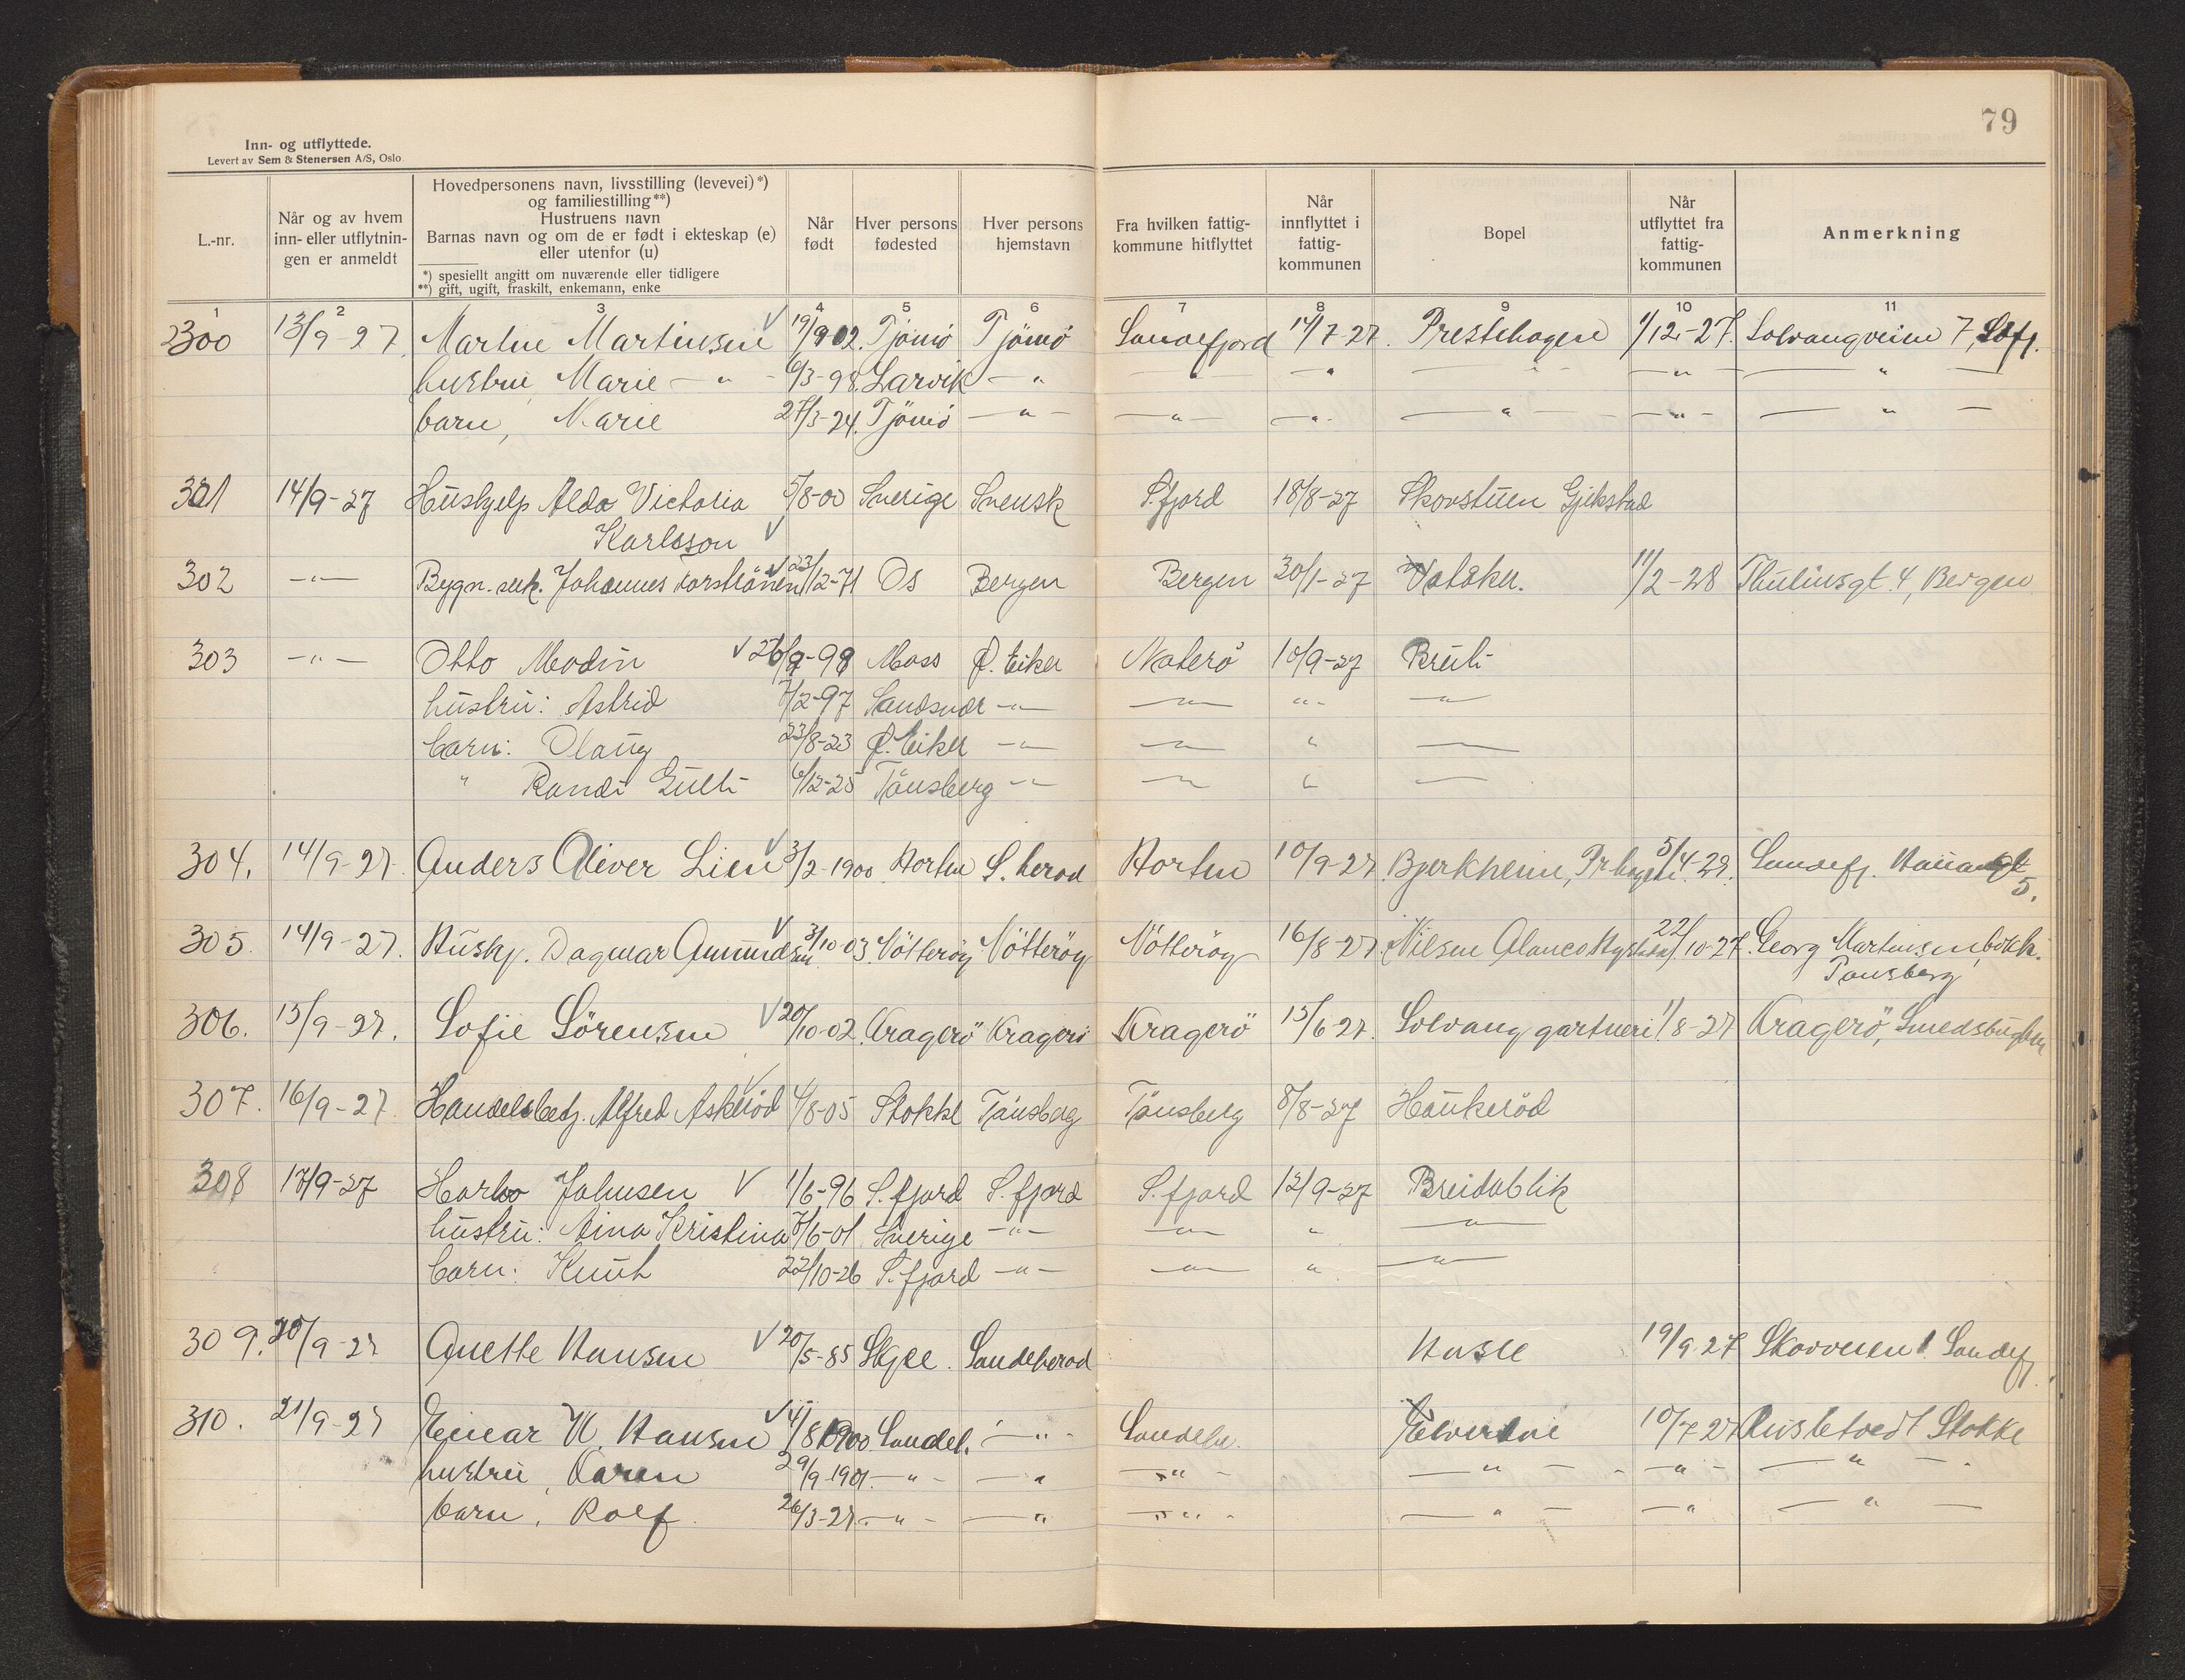 79
Inn- og utflyttede.
Levert av Sem & Stenersen A/S, Oslo
L.-nr.
Når og av hvem inn- eller utflytnin- gen er anmeldt
Hovedpersonens navn, livsstilling (levevei)*)
og familiestilling**)
Hustruens navn
Barnas navn og om de er født i ekteskap (e)
eller utenfor (u)
*) spesiellt angitt om nuværende eller tidligere
**) gift, ugift, fraskilt, enkemann, enke
Når født
Hver persons fødested
Hver persons hjemstavn
Fra hvilken fattig- kommune hitflyttet
Når innflyttet i fattig- kommunen
Bopel
Når utflyttet fra fattig- kommunen
Anmerkning
1 2 3 4 5 6 7 8 9 10 11
300 13/9-27 Martin Martinsen √ 19/9 02. Tjömö Tjömö Sandefjord 14/7-27. Prestehagen 1/12-27. Solvangveien 7, Sdfj.
hustru, Marie — " — 6/3-98. Larvik — " — " — " — " — " — "
barn, Marie 27/3-24. Tjömö — " — " — " — " — " — "
301 14/9-27 Hushjelp Alda Victoria 5/8-00 Sverige Svensk S.fjord 18/8-27 Skovstuen Gjekstad
Karlsson √
302 — " — Bygn. sek. Johannes √ 23/12-71 Os Bergen Bergen 30/1-27 Vataker. 11/2-28 Thulinsgt. 4, Bergen
303 — " — Otto Modin √ 26/9-98 Moss Ø. Eiker Nøterö 10/9-27 Breili
hustru: Astrid 7/2-97 Sandsvær — " — " — " — "
barn: Olaug 23/8-23 Ø. Eiker — " — " — " — "
" Randi Gulli 6/12-25 Tönsberg — " — " — " — "
304. 14/9-27. Anders Oliver Lien √ 3/2-1900 Horten S. herad Horten 10/9-27. Bjerkheim, Pr.hagen 5/4-29. Sandefj.
5.
305. 14/9-27. Hushj. Dagmar Amundsen √ 3/10-03. Nötteröy Nötteröy Nötteröy 16/8-27. Nilsen 22/10-27. Georg Martinsen,
Tönsberg
306. 15/9-27. Sofie Sörensen √ 20/10-02. Kragerö Kragerö Kragerö 15/6-27. Solvang gartneri 1/8-27 Kragerö,
307. 16/9-27 Handelsbetj. Alfred Askeröd √ 4/8-05 Stokke Tönsberg Tönsberg 8/8-27 Haukeröd
308 17/9-27 Johnsen √ 1/6-96 S.fjord S.fjord S.fjord 12/9-27 Breidablik
hustru: Aina Kristina 7/6-01 Sverige — " — " — " — "
barn: Knut 22/10-26 S.fjord — " — " — " — "
309. 20/9-27 Anette Hansen √ 20/5-85 Skjee. Sandeherad Hasle 19/9 27 Skovveien 1. Sandefj.
310. 21/9-27 Einar H. Hansen √ 4/8 1900. Sandeh. — " — Sandeh. 10/7-27 Stokke
hustru, Karen 29/9-1901. — " — " — " — " — " — "
barn, Rolf. 26/3-27. — " — " — " — " — " — "